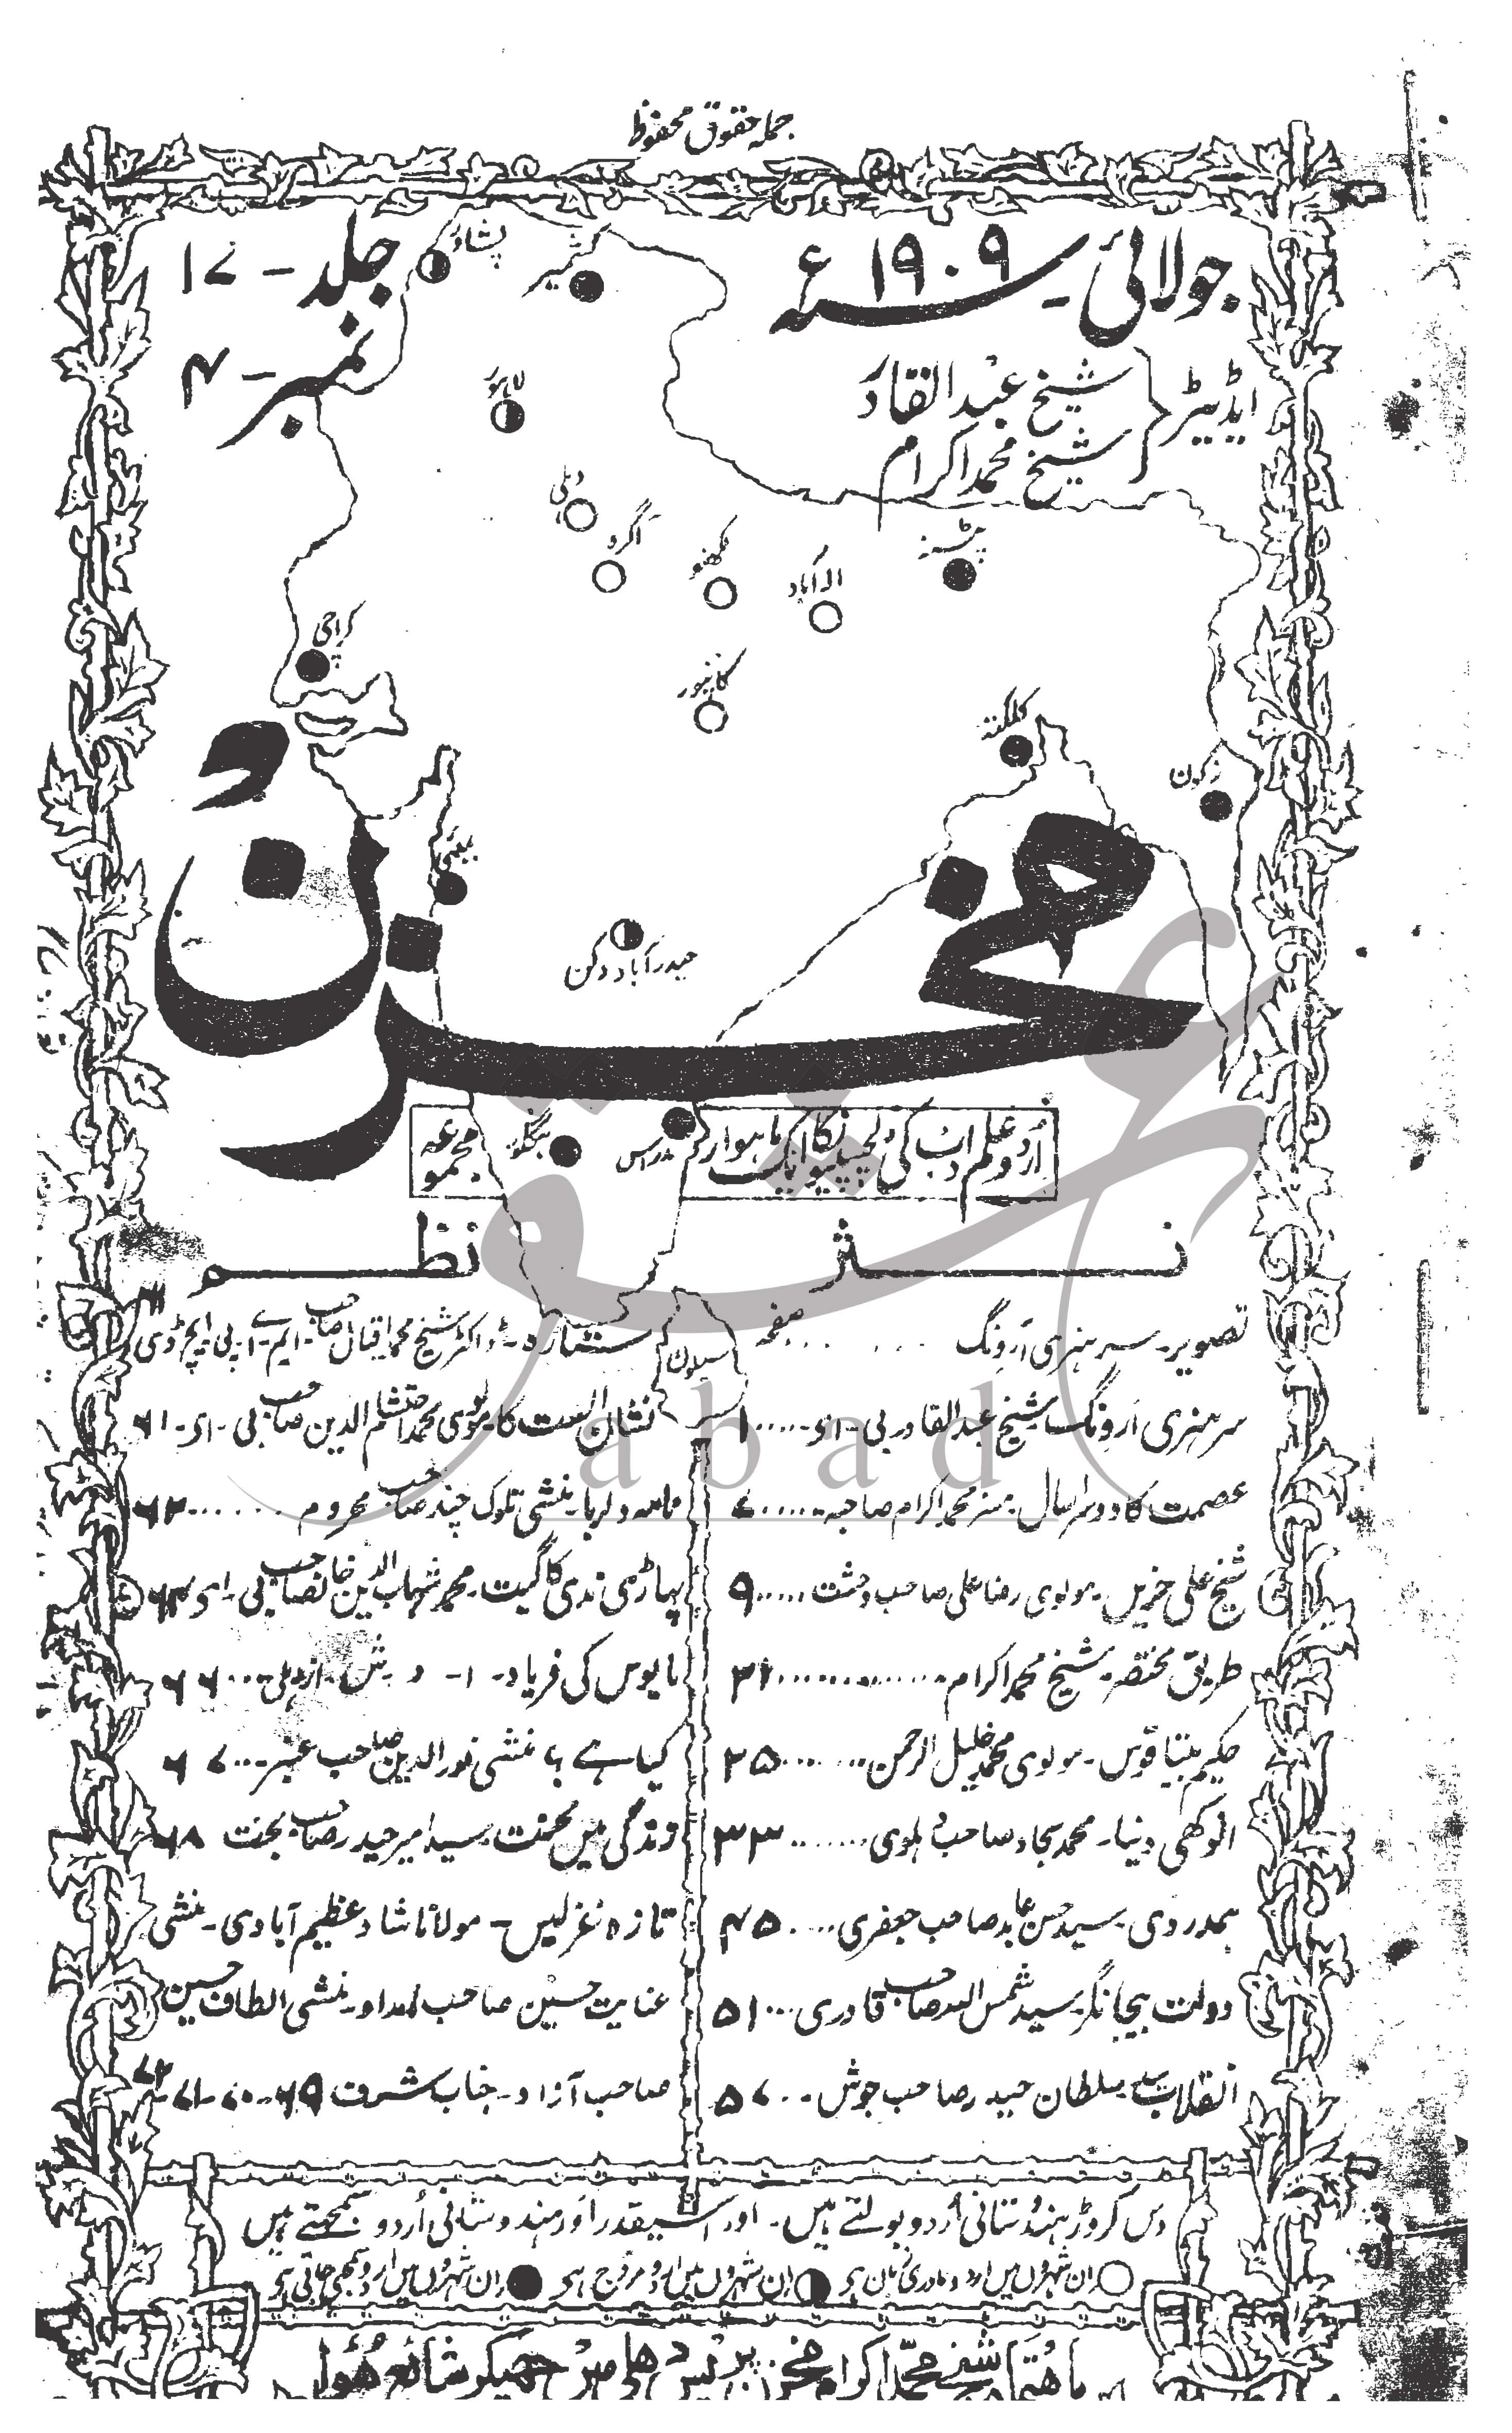 جملہ حقوق محفوظ
جولائی۔ ۱۹۰۹ء
جلد - ۱۷
نمبر - ۴
ایڈیٹر
شیخ عبدالقادر
شیخ محمد اکرام
پشاور
کشمیر
لاہور
دہلی
آگرہ
لکھنؤ
الہ آباد
پٹنہ
کراچی
کانپور
کلکتہ
رنگون
بمبئی
حیدرآباد دکن
مخزن
اُردو علم و ادب کی دلچسپیوں کا ایک ماہوار
مجموعہ
مدراس
بنگلور
سیلون
نثر
تصویر۔ سر ہنری اَروِنگ ..... صفحہ
سر ہنری اَروِنگ۔ شیخ عبدالقادر بی۔ اے ..... ۱
عصمت کا دوسرا سال۔ مسز محمد اکرام صاحبہ ..... ۷
شیخ علی حزیں۔ مولوی رضا علی صاحب وحشت ..... ۹
طریق مختصر۔ شیخ محمد اکرام ..... ۲۱
حکیم بیتاقوس۔ مولوی محمد خلیل الرحمن ..... ۲۵
انوکھی دنیا۔ محمد سجاد صاحب دہلوی ..... ۳۳
ہمدردی۔ سید حسن عابد صاحب جعفری ..... ۴۵
دولت بیجانگر۔ سید شمس اللہ صاحب قادری ... ۵۱
انقلاب۔ سلطان حیدر صاحب جوش ... ۵۷
نظم
ستارہ۔ ڈاکٹر شیخ محمد اقبال صاحب۔ ایم۔ اے۔ پی۔ ایچ ڈی
نشان الست کا۔ مولوی محمد احتشام الدین صاحب بی۔ اے۔ ۶۱
نامہ دلربا۔ منشی تلوک چند صاحب محروم ..... ۶۲
پہاڑی ندی کا گیت۔ محمد شہاب الدین خانصاحب بی۔ اے ۶۴
مایوس کی فریاد۔ ا۔ د۔ ش۔ از دہلی ... ۶۶
کیا ہے؟ منشی نور الدین صاحب عنبر ... ۶۷
زندگی میں محنت۔ سید امیر حیدر صاحب بخت ۶۸
تازہ غزلیں۔ مولانا شاد عظیم آبادی۔ منشی
عنایت حسین صاحب امداد۔ منشی الطاف حسین
صاحب آزاد۔ جناب شرف ۶۹-۷۰-۷۱-۷۲
دس کروڑ ہندُستانی اُردو بولتے ہیں۔ اور اسیقدر اَور ہندوستانی اُردو سمجھتے ہیں
ان شہروں میں اردو مادری زبان ہے ان شہروں میں اردو مروّج ہے ان شہروں میں اردو سمجھی جاتی ہے
باہتمام شیخ محمّد اکرام مخزن پریس دہلی میں چھپکر شائع ہُوا
عشق
abad